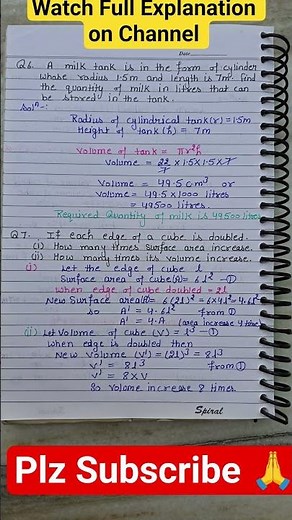 Watch Full Explanation
on Channel
Date
Q6. A milk tank is in the form of cylinder
whose radius 1.5m and length is 7m. find
the quantity of milk in litres that can
be stored in the tank.
Solⁿ:-
Radius of cylindrical tank(r) = 1.5m
Height of tank (h) = 7m
Volume of tank = πr²h
Volume = 22/7 × 1.5 × 1.5 × 7
Volume = 49.5 cm³ or
Volume = 49.5 × 1000 litres
= 49500 litres.
Required Quantity of milk is 49500 litres
Q7. If each edge of a cube is doubled.
(i) How many times surface area increase.
(ii) How many times its volume increase.
(i) Let the edge of cube l
Surface area of cube(A) = 6l² — ①
When edge of cube doubled = 2l
New Surface area(A') = 6(2l)² = 6×4l² = 4·6l²
so A' = 4·6l² from ①
A' = 4·A (area increase 4 times)
(ii) Let Volume of cube (V) = l³ — ①
When edge is doubled then
New volume (V') = (2l)³ = 8l³
V' = 8l³ from ①
V' = 8×V
So volume increase 8 times
Spiral
Plz Subscribe 🙏